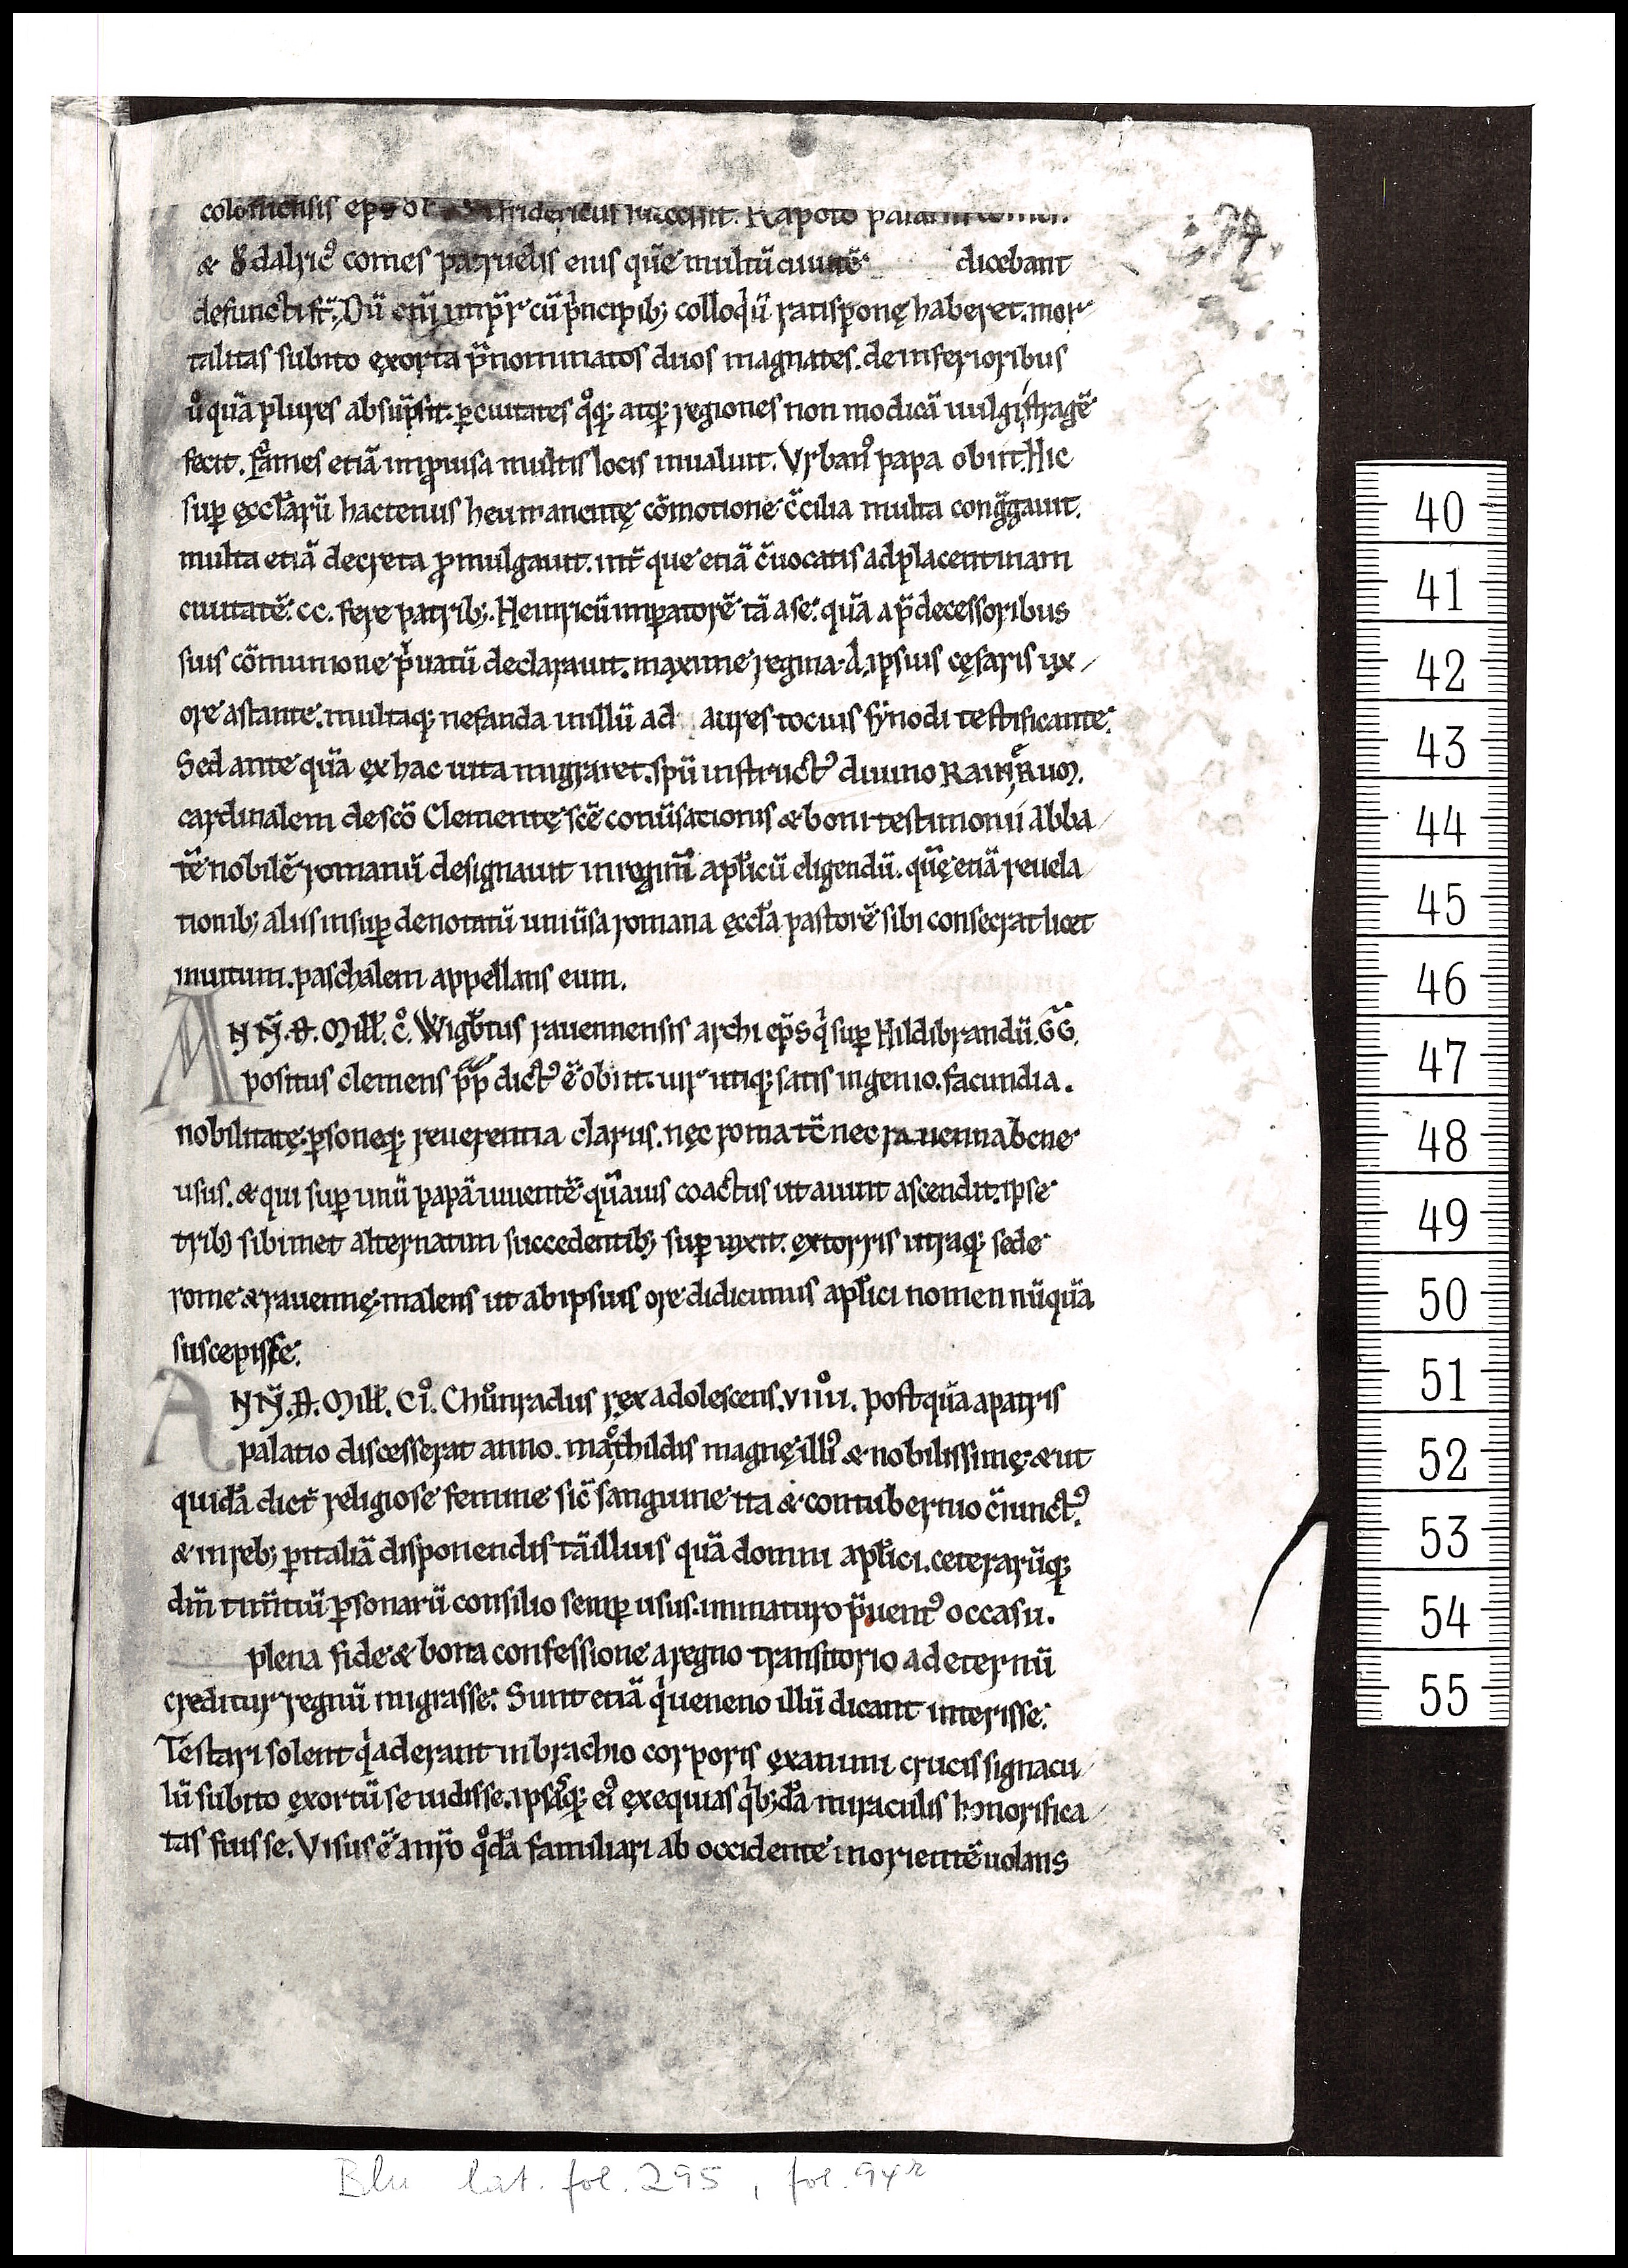 coloniensis eps ob Fridericus successit. Rapoto
& Ŏdalric᷒ comes patruelis eius quē multū diuitē dicebant
defuncti st̄. Dū eni imp̄r cū p̲ncipib; colloq̇ū ratisponę haberet. mor
talitas subito exorta p̄nominatos duos magnates. de inferioribus
u̇ quā plures absūpsit. p̲ ciuitates q̊q; atq; regiones non modicā uulgi stragē
fecit. Fames etiā inp̲uisa multis locis inualuit. Vrban᷒ papa obiit. Hic
sup̲ ęccl̄arū hactenus heu manentę cōmotione c̄cilia multa congͣgauit.
multa etiā decreta p̲mulgauit. int̄ que etiā c̄uocatis ad placentinam
ciuitatē. cc. fere patrib;. Heinricū imp̲atorē tā a se quā a p̄decessoribus
suis cōmunione p̍uatū declarauit. maxime regina .A. ipsius cęsaris ux
ore astante. multaq; nefanda in illū ad aures tocius synodi testificante.
Sed ante quā ex hac uita migraret. spū instruct᷒ diuino Rainęrum.
cardinalem de scō Clementę scē conūsationis & boni testimonii abba
tē nobilē romanū designauit in regim̄ apl̄icū eligendū. quē etiā reuela
tionib; aliis insup̲ denotatū uniūsa romana ęccl̄a pastorē sibi consecrat licet
inuitum. paschalem appellans eum.
ANN̄. D. Mill̄. c̊. Wigb̄tus rauennensis archi ep̄s q̍ sup̲ Hildibrandū. GG̅.
positus clemens pp̄ dict᷒ ē obiit. uir utiq; satis ingenio. facundia.
nobilitatę. p̲soneq; reuerentia clarus. nęc roma tc̄ nec rauenna bene
usus. & qui sup̲ unū papā uiuentē quāuis coactus ut aiunt ascendit. ipse
trib; sibimet alternatim succedentib; sup̲uixit. extorris utraq; sede
rome & rauennę. malens ut ab ipsius ore didicimus apl̄ici nomen nūquā
suscepisse.
ANN̄. D. Mill̄. Ci̊. Chůnradus rex adolescens. viiii̊. postquā a patris
palatio discesserat anno. mathildis magnę illi᷒ & nobilissimę & ut
quidā dict̄ religiose femine sic̄ sanguine ita & contubernio c̄iunct᷒.
& in reb; p̲ italiā disponendis tā illius quā domni apl̄ici. ceterarūq;
dm̄ timentiū p̲sonarū consilio semp̲ usus. immaturo p̄uent᷒ occasu.
plena fide & bona confessione a regno transitorio ad eternū
creditur regnū migrasse. Sunt etiā q̍ ueneno illū dicant interisse.
Testari solent q̍ aderant in brachio corporis exanimi crucis signacu
lū subito exortū se uidisse. ipsasq; ei᷒ exequias q̍b;dā miraculis honorifica
tas fuisse. Visus ē in q̊dā familiari ab occidente in orientē uolans
40
41
42
43
44
45
46
47
48
49
50
51
52
53
54
55
lat. fol. 295, fol. 94r